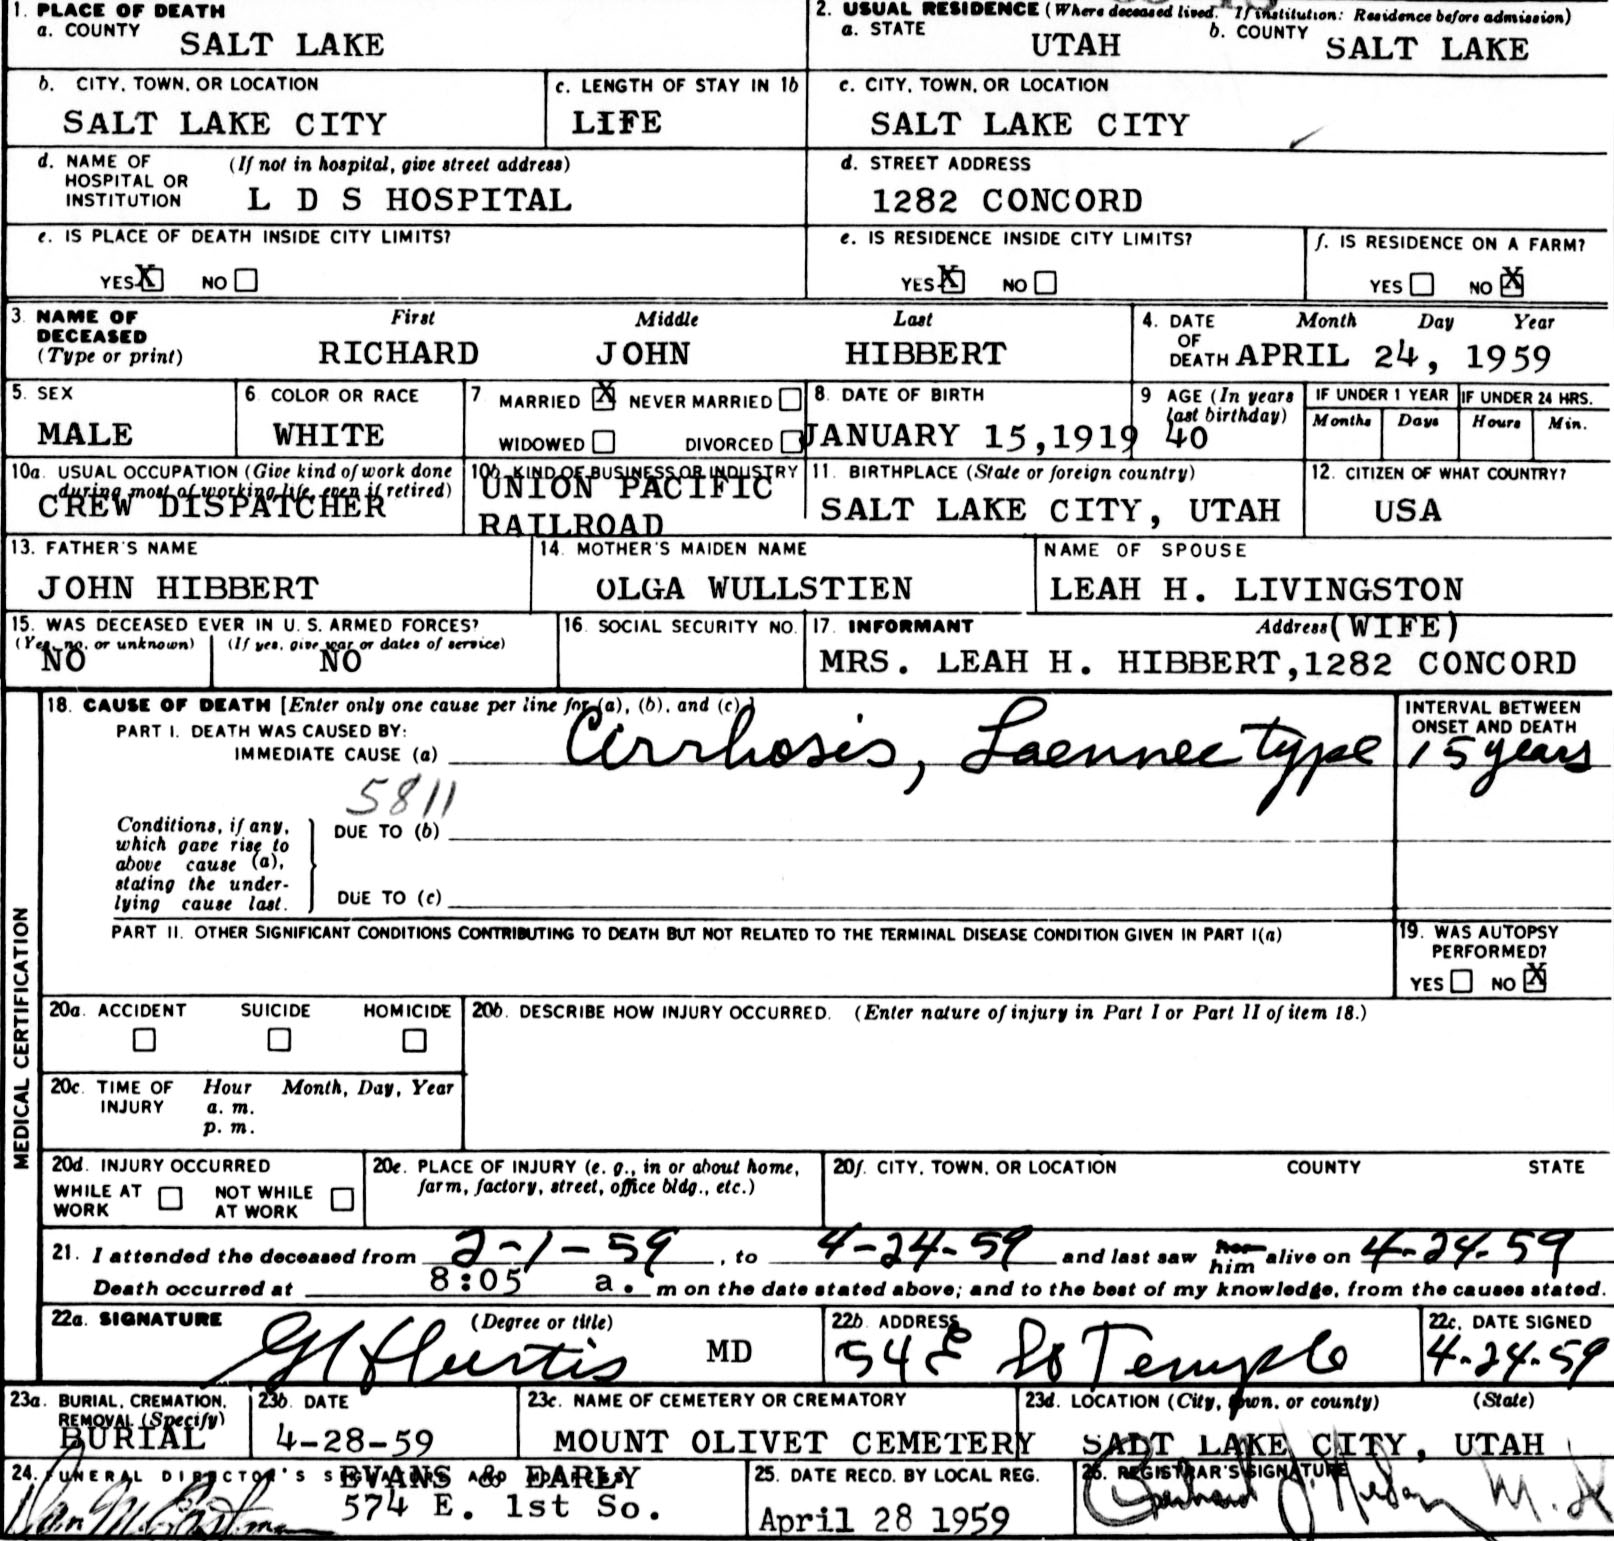 1. PLACE OF DEATH
a. COUNTY
SALT LAKE
2. USUAL RESIDENCE (Where deceased lived. If institution: Residence before admission)
a. STATE
UTAH
b. COUNTY
SALT LAKE
b. CITY, TOWN, OR LOCATION
SALT LAKE CITY
c. LENGTH OF STAY IN 1b
LIFE
c. CITY, TOWN, OR LOCATION
SALT LAKE CITY
d. NAME OF HOSPITAL OR INSTITUTION
(If not in hospital, give street address)
L D S HOSPITAL
d. STREET ADDRESS
1282 CONCORD
e. IS PLACE OF DEATH INSIDE CITY LIMITS?
YES X NO
e. IS RESIDENCE INSIDE CITY LIMITS?
YES X NO
f. IS RESIDENCE ON A FARM?
YES NO X
3. NAME OF DECEASED
(Type or print)
First Middle Last
RICHARD JOHN HIBBERT
4. DATE OF DEATH
Month Day Year
APRIL 24, 1959
5. SEX
MALE
6 COLOR OR RACE
WHITE
7 MARRIED X NEVER MARRIED
WIDOWED DIVORCED
8. DATE OF BIRTH
JANUARY 15,1919
9 AGE (In years last birthday)
40
IF UNDER 1 YEAR
Months Days
IF UNDER 24 HRS.
Hours Min.
10a. USUAL OCCUPATION (Give kind of work done during most of working life, even if retired)
CREW DISPATCHER
10b. KIND OF BUSINESS OR INDUSTRY
UNION PACIFIC
RAILROAD
11. BIRTHPLACE (State or foreign country)
SALT LAKE CITY, UTAH
12. CITIZEN OF WHAT COUNTRY?
USA
13. FATHER'S NAME
JOHN HIBBERT
14. MOTHER'S MAIDEN NAME
OLGA WULLSTIEN
NAME OF SPOUSE
LEAH H. LIVINGSTON
15. WAS DECEASED EVER IN U. S. ARMED FORCES?
(Yes, no, or unknown) (If yes, give war or dates of service)
NO NO
16. SOCIAL SECURITY NO.
17. INFORMANT Address (WIFE)
MRS. LEAH H. HIBBERT,1282 CONCORD
MEDICAL CERTIFICATION
18. CAUSE OF DEATH [Enter only one cause per line for (a), (b), and (c).]
PART I. DEATH WAS CAUSED BY:
IMMEDIATE CAUSE (a) Cirrhosis, Laennec type
INTERVAL BETWEEN ONSET AND DEATH
15 years
5811
Conditions, if any, which gave rise to above cause (a), stating the underlying cause last.
DUE TO (b)
DUE TO (c)
PART II. OTHER SIGNIFICANT CONDITIONS CONTRIBUTING TO DEATH BUT NOT RELATED TO THE TERMINAL DISEASE CONDITION GIVEN IN PART I(a)
19. WAS AUTOPSY PERFORMED?
YES NO X
20a. ACCIDENT SUICIDE HOMICIDE
20b. DESCRIBE HOW INJURY OCCURRED. (Enter nature of injury in Part I or Part II of item 18.)
20c. TIME OF INJURY
Hour Month, Day, Year
a. m.
p. m.
20d. INJURY OCCURRED
WHILE AT WORK NOT WHILE AT WORK
20e. PLACE OF INJURY (e. g., in or about home, farm, factory, street, office bldg., etc.)
20f. CITY, TOWN, OR LOCATION COUNTY STATE
21. I attended the deceased from 2-1-59, to 4-24-59 and last saw her him alive on 4-24-59
Death occurred at 8:05 a. m on the date stated above; and to the best of my knowledge, from the causes stated.
22a. SIGNATURE (Degree or title)
MD
22b. ADDRESS
54 E So Temple
22c. DATE SIGNED
4-24-59
23a. BURIAL, CREMATION, REMOVAL (Specify)
BURIAL
23b. DATE
4-28-59
23c. NAME OF CEMETERY OR CREMATORY
MOUNT OLIVET CEMETERY
23d. LOCATION (City, town, or county) (State)
SALT LAKE CITY, UTAH
24. FUNERAL DIRECTOR'S
EVANS & EARLY
574 E. 1st So.
25. DATE RECD. BY LOCAL REG.
April 28 1959
26. REGISTRAR'S SIGNATURE